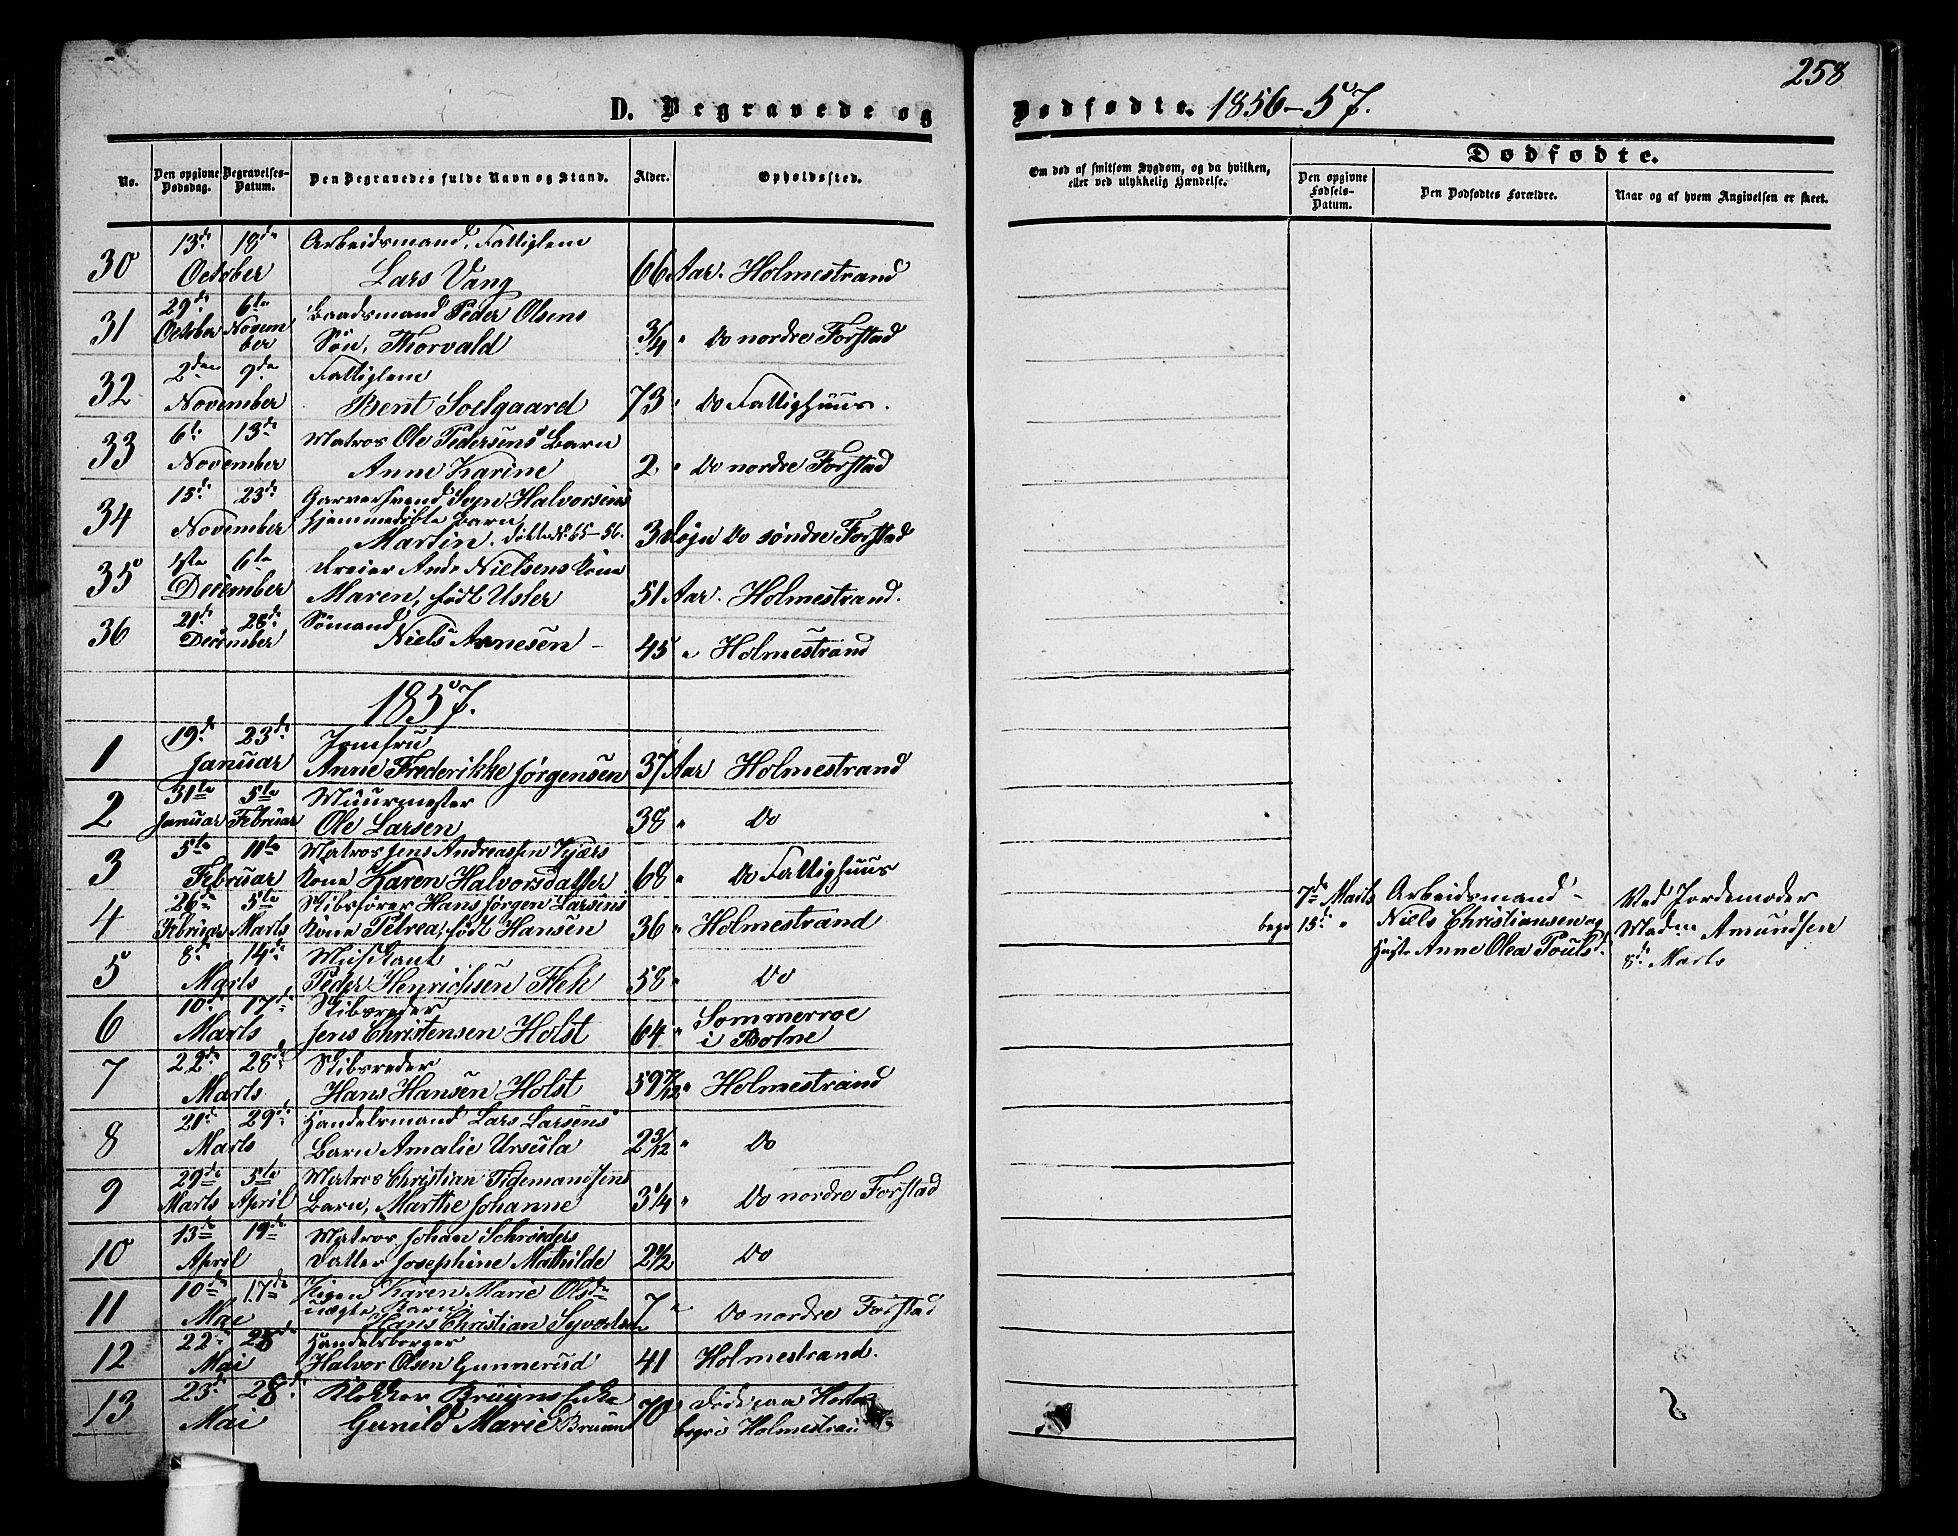 258
D. Begravede og Dødfødte. 1856-57.
No.
Den opgivne Dødsdag.
Begravelses-Datum.
Den Begravedes fulde Navn og Stand.
Alder.
Opholdssted.
Om død af smitsom Sygdom, og da hvilken,
eller ved ulykkelig Hændelse.
Dødfødte.
Den opgivne Fødsels-Datum.
Den Dødfødtes Forældre.
Naar og af hvem Angivelsen er skeet.
30 13de 18de October Arbeidsmand, Fattiglem
Lars Vang 66 Aar. Holmestrand
31 29de October 6te November Baadsmand Peder Olsens
Søn, Thorvald 3/4 " Do nordre Forstad
32 2den 9de November Fattiglem
Bent Solgaard 73 " Do Fattighuus.
33 6te 13de November Matros Ole Pedersens Barn
Anne Karine 2 " Do nordre Forstad
34 15de 23de November Garversvend Syn Halvorsens
hjemmedøbte Barn,
Martin. 3 Døgn Do søndre Forstad
35 1ste 6te December Dreier And. Nielsens Kone
Maren, født Usler 51 Aar. Holmestrand.
36 21de 28de December Sømand
Niels Arnesen 45 " Holmestrand
1857.
1 19de 23de Januar Jomfru
Anne Frederikke Jørgensen 37 Aar Holmestrand
2 31te Januar 5te Februar Muurmester
Ole Larsen 38 " Do
3 5te 11te Februar Matros Jens Andreassen Kjærs
Kone Karen Halvorsdatter 68 " Do Fattighuus
4 26de Februar 5te Marts Skibsfører Hans Jørgen Larsens
Kone Petrea, født Hansen 36 " Holmestrand
7de Marts Arbeidsmand Ved Jordemoder
begr 15de " Niels Christiansen og Madm Amundsen
Hust. Anne Olea Poulsd. 8de Marts
5 8de 14de Marts Musikant
Peder Henrichsen Flek 58 " Do
6 10de 17de Marts Skibsreder
Jens Christensen Holst 64 " Sommerroe
i Botne
7 22de 28de Marts Skibsreder
Hans Hansen Holst 59 " Holmestrand
8 21de 29de Marts Handelsmand Lars Larsens
Barn Amalie Ursula 2 3/12 " Do
9 29de Marts 5te April Matros Christian Tidemandsens
Barn, Marthe Johanne 3 1/4 " Do nordre Forstad
10 13de 19de April Matros Johan Schrøders
Datter Josephine Mathilde 2 1/2 Do
11 10de 17de Mai Pigen Karen Marie Olsd
uægte Barn,
Hans Christian 7 " Do nordre Forstad
12 22de 28de Mai Handelsborger
Halvor Olsen Gunnerud 41 Holmestrand.
13 23de 28de Mai Klokker Bruuns Enke
Gunild Marie Bruun 70 Død paa
begr i Holmestran